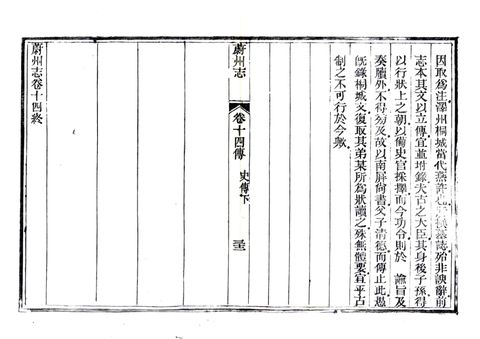 因取爲注澤州桐城當代燕許也 墓誌殆非諛辭前
志本其文以立傳宜並坿錄夫古之大臣其身後子孫得
以行狀上之朝以備史官採擇而今功令則於 諭旨及
奏牘外不得 及故以南屏尚書父子清德而傳止此愚
既錄桐城文復取其弟某所爲狀讀之殊無體要宜乎古
制之不可行於今歟
蔚州志
卷十四傳
史傳下
蔚州志卷十四終